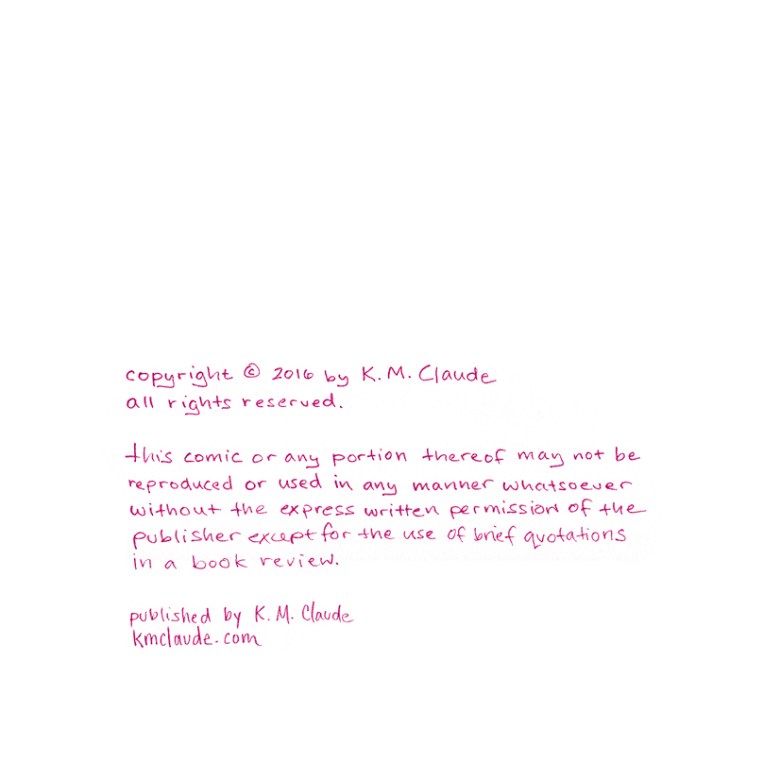 copyright © 2016 by K. M. Claude
all rights reserved.
this comic or any portion thereof may not be
reproduced or used in any manner whatsoever
without the express written permission of the
publisher except for the use of brief quotations
in a book review.
published by K. M. Claude
kmclaude.com